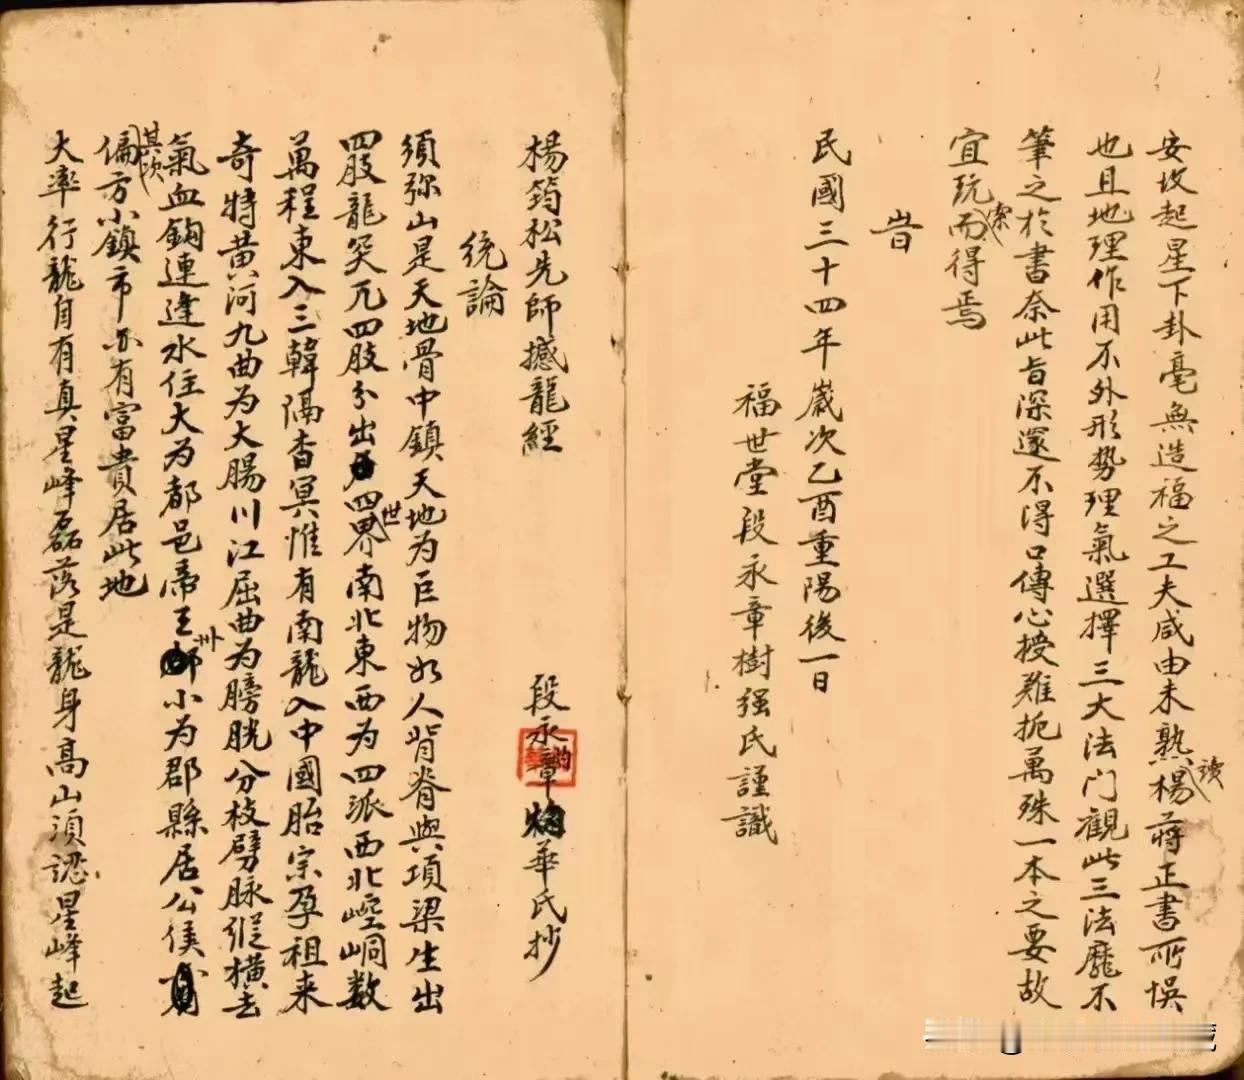 安坟起星下卦毫無造福之工夫咸由未熟讀楊蔣正書所悞
也且地理作用不外形勢理氣選擇三大法门觀此三法靡不
筆之於書奈此旨深邃不得口傳心授難扼萬殊一本之要故
宜玩索而得焉
旹
民國三十四年歲次乙酉重陽後一日
福世堂段永章樹强氏謹識
楊筠松先師撼龍經
段永章 華氏抄
統論
須弥山是天地骨中鎮天地为巨物如人背脊與項梁生出
四肢龍突兀四肢分出四世界南北東西为四派西北崆峒数
萬程東入三韓隔杳冥惟有南龍入中國胎宗孕祖来
奇特黄河九曲为大腸川江屈曲为膀胱分枝劈脉縱橫去
氣血鈎連逢水住大为都邑帝王州小为郡縣居公侯
其次偏方小鎮市亦有富貴居此地
大率行龍自有真星峰磊落是龍身高山須認星峰起